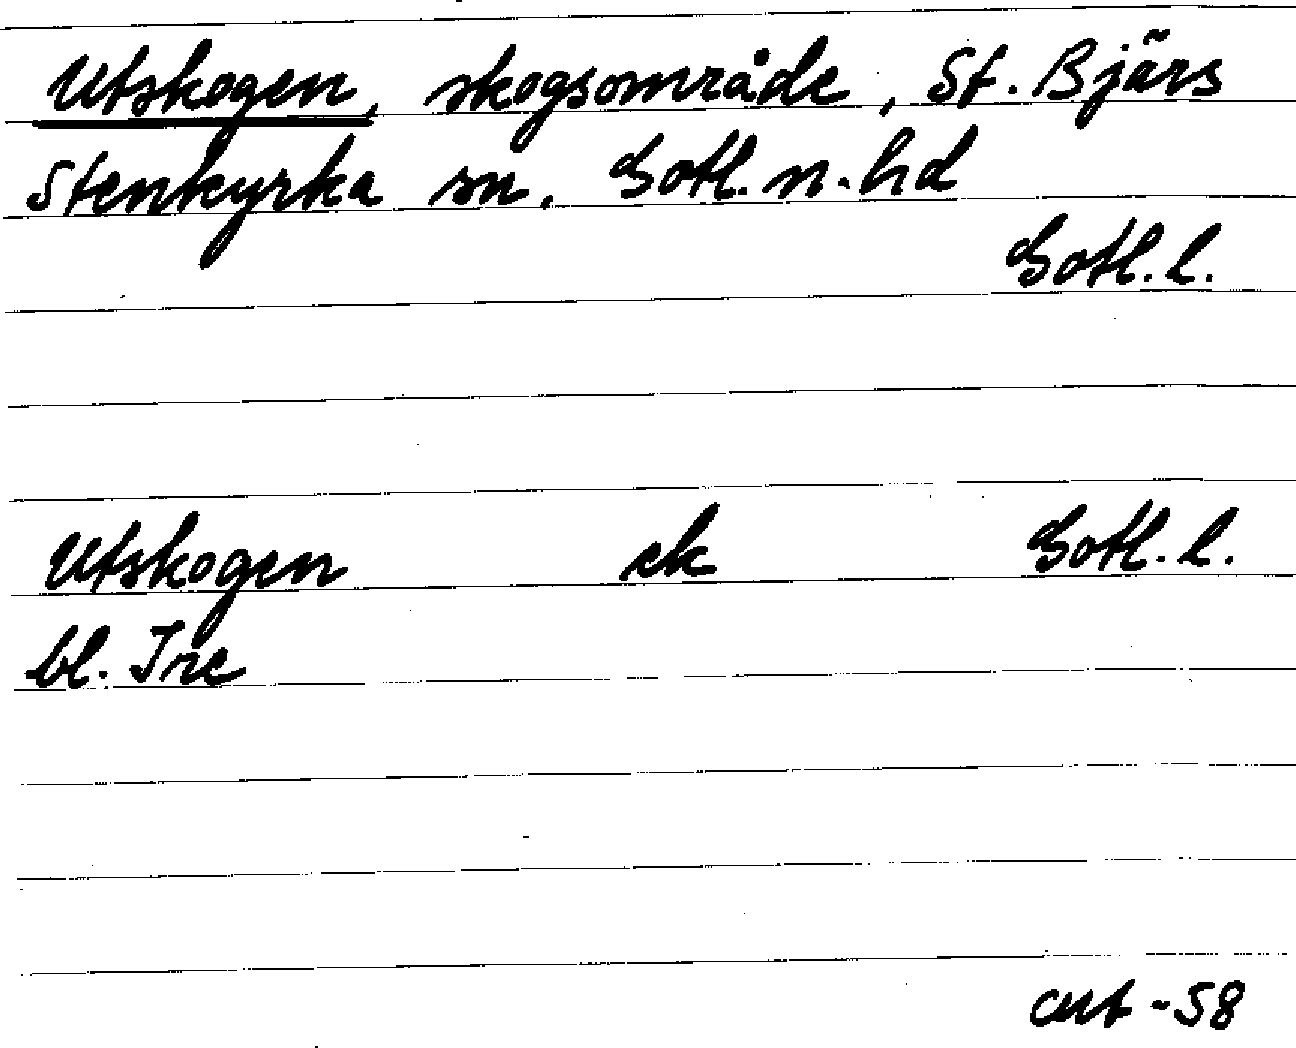 Utskogen, skogsområde, St. Bjärs
Stenkyrka sn, Gotl. n. hd
Gotl. l.
Utskogen ek Gotl. l.
bl. Ire
-58